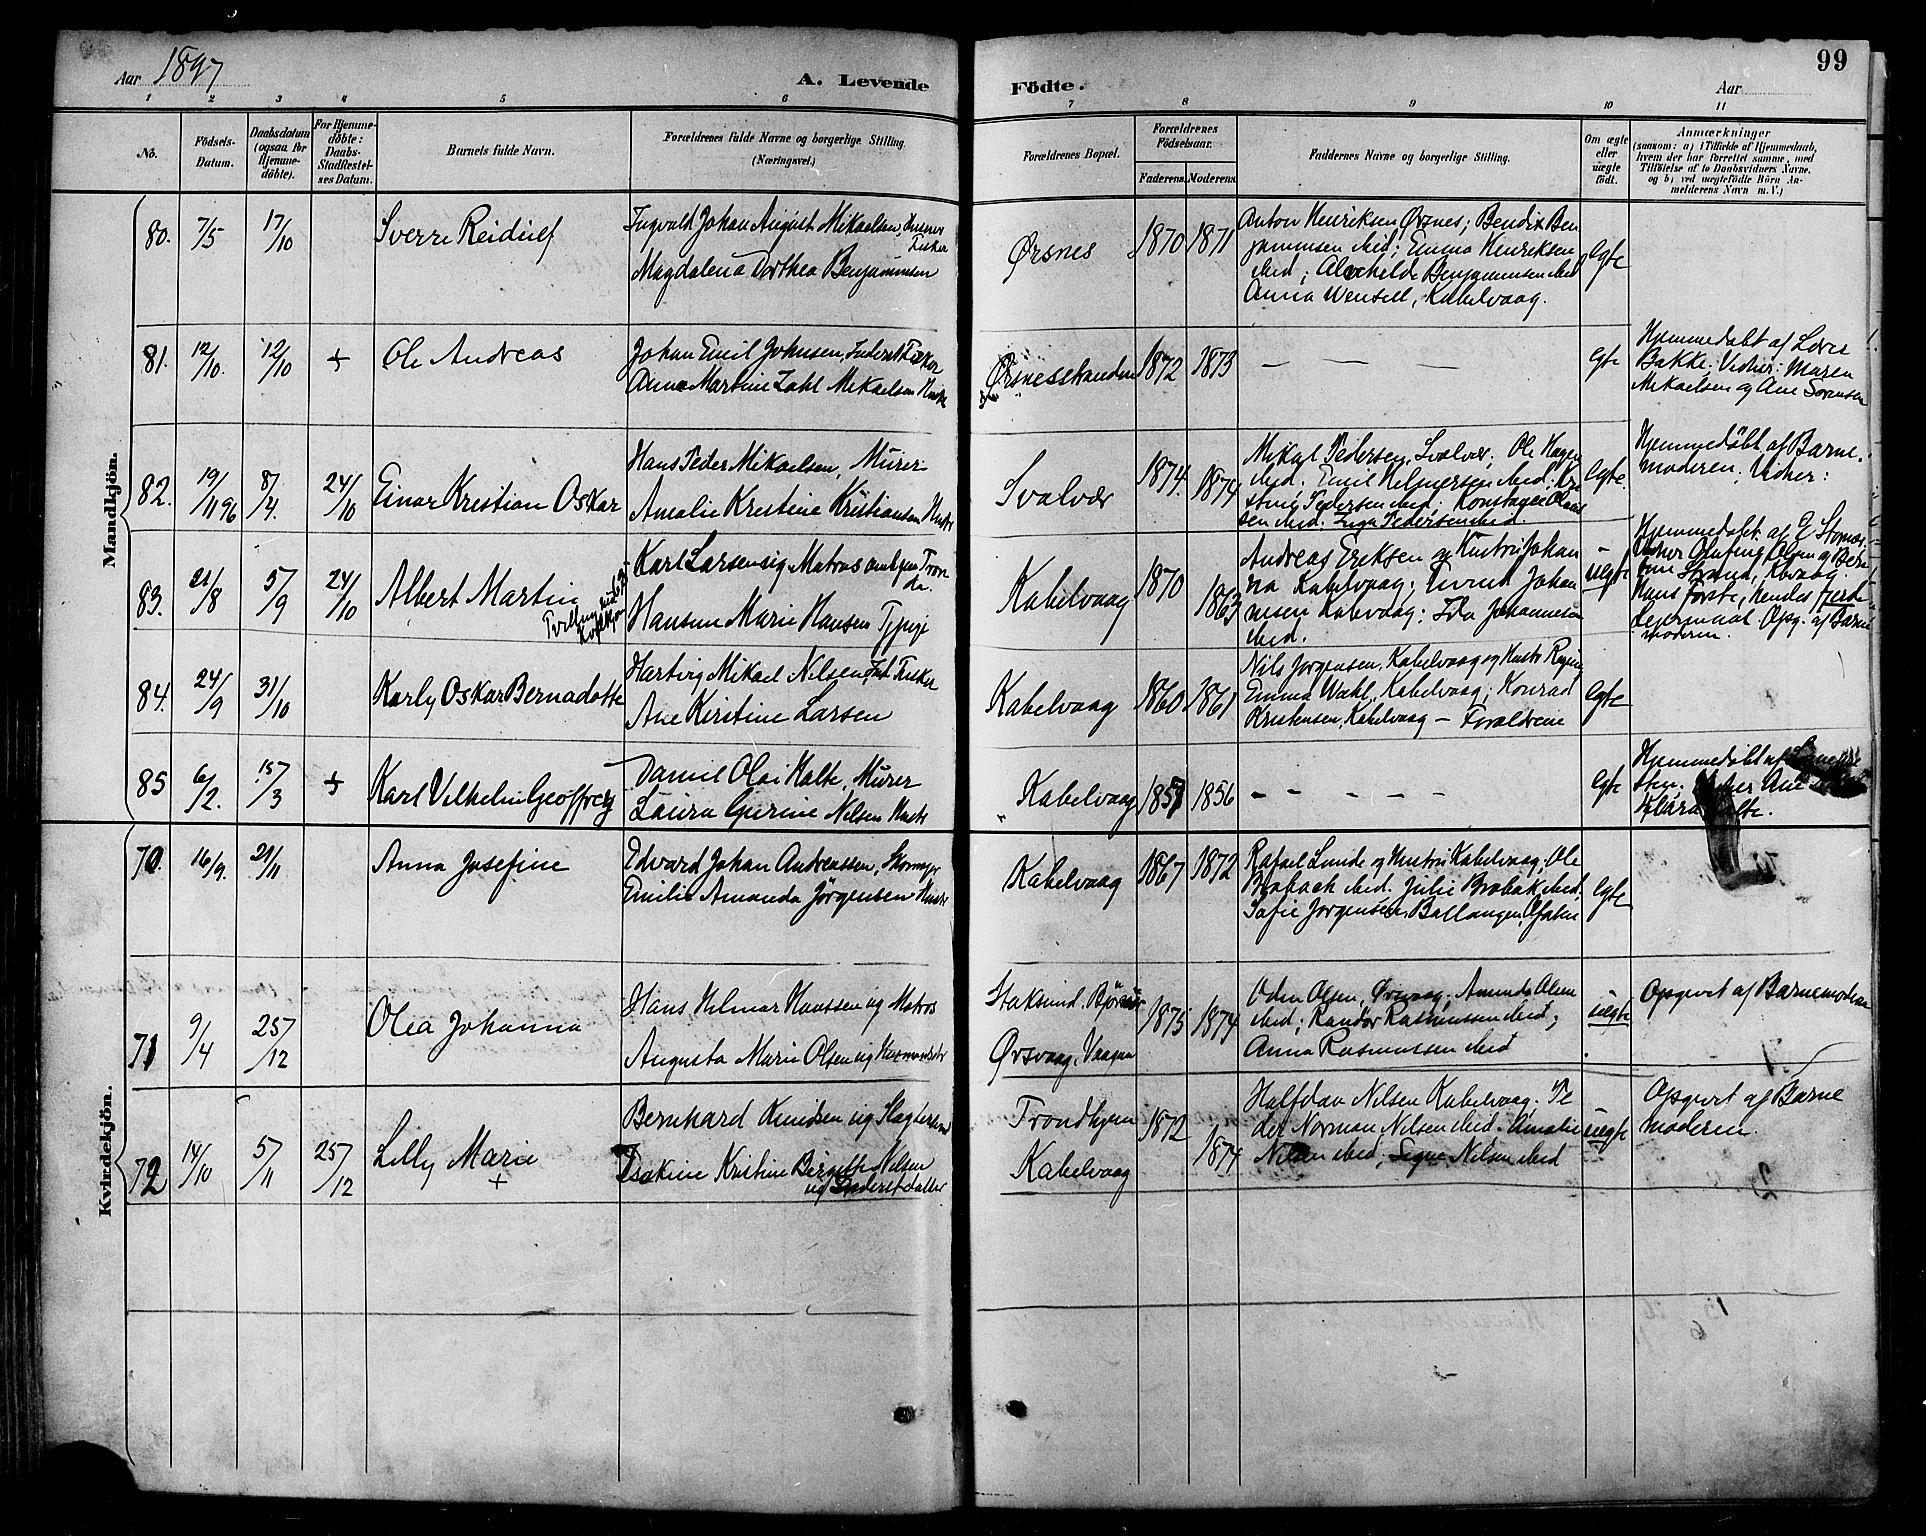 Aar 1897 A. Levende
Födte. Aar 99
1 2 3 4 5 6 7 8 9 10 11
No.
Födsels-
Datum.
Daabsdatum
(ogsaa for
Hjemme-
döbte).
For Hjemme-
döbte:
Daabs-
Stadfæstel-
ses Datum.
Barnets fulde Navn.
Forældrenes fulde Navne og borgerlige Stilling.
(Næringsvei.)
Forældrenes Bopæl.
Forældrenes
Fødselsaar.
Faderens. Moderens.
Faddernes Navne og borgerlige Stilling.
Om ægte
eller
uægte
født.
Anmærkninger
(saasom: a) i Tilfælde af Hjemmedaab,
hvem der har forrettet samme, med
Tilföielse af to Daabsvidners Navne,
og b) ved uægtefödte Börn An-
melderens Navn m. V.)
Mandkjön.
80. 7/5 17/10 Sverre Reidulf
Ingvald Johan August Mikaelsen,
Magdalena Dorthea Benjaminsen
Ørsnes 1870 1871
Anton Henriksen Ørsnes; Bendix Ben
jaminsen ibid; Emma Henriksen
ibid; Alvhilde Benjaminsen ibid
Anna Wensell, Kabelvaag.
Egte
81. 12/10. 12/10 + Ole Andreas
Johan Emil Johnsen, Fisker
Anne Martine Zahl Mikaelsen Hustr
Ørsnesstranden 1872 1873 — — —
Egte
Hjemmedøbt af
Bakke; Vidner: Maren
Mikaelsen og Ane Sørensen
82. 19/11 96 8/4. 24/10 Einar Kristian Oskar
Hans Peder Mikaelsen, Murer
Amalie Kristine Kristiansen Hustr
Svolvær 1874. 1874
Mikal Pedersen, Svolvær; Ole Hagen
ibid. Emil Helmersen ibid; Kri
stine Pedersen ibid, Olaus
sen ibid. Inga Pedersen ibid.
Egte.
Hjemmedøbt af Barne-
moderen; Vidner:
83. 21/8 5/9 24/10 Albert Martin
Karl Larsen ug Matros
Hansine Marie Hansen Tjpige
Kabelvaag 1870 1863
Andreas Eriksen og Hustru Johan
na Kabelvaag; Eivind Johan
nesen Kabelvaag; Ida Johannesen
ibid.
uegte
Hjemmedøbt af E. Stornæs.
Vidner Olufine Olsen og Ber
Strand, Kbvaag.
Hans første, hendes fjerde
Leiermaal. Opg. af Barne
moderen.
84. 24/9 31/10 Karly Oskar Bernadotte
Hartvig Mikael Nilsen, Ind. Fisker
Ane Kirstine Larsen
Kabelvaag 1860 1861
Nils Jørgensen, Kabelvaag og Hustr
Emma Wahl, Kabelvaag; Konrad
Kristensen, Kabelvaag — Forældrene
Egte
85 6/2. 15/3 + Karl Vilhelm Geoffrey
Daniel Olai Kalte, Murer
Laura Gurine Nilsen Hustr
Kabelvaag 1857 1856 — — — — —
Egte
Hjemmedøbt af
Ane
Klara Kalte.
Kvindekjön.
70. 16/9. 21/11 Anna Josefine
Edvard Johan Andreassen,
Emilie Amanda Jørgensen Hustr
Kabelvaag 1867 1872
Rafael Lunde og Hustru Kabelvaag, Ole
Brobach ibid. Julie Brobak ibid,
Sofie Jørgensen, Ballangen, Ofoten
Egte
71 9/4 25/12 Olea Johanna
Hans Helmar Hanssen ug Matros
Augusta Marie Olsen ug
Staksund. Bjørnør
Ørsvaag, Vaagan
1875 1874
Odin Olsen, Ørsvaag; Amanda Olsen
ibid; Randor Rasmussen ibid;
Anna Rasmussen ibid
uegte
Opgivet af Barnemoderen
72 14/10 5/11 25/12 Lilly Marie
+
Bernhard Knudsen ug
Kristine Birgitte Nilsen
ug
Trondhjem
Kabelvaag
1872 1874
Halfdan Nilsen Kabelvaag. Pe
der Norman Nilsen ibid. Amalie
Nilsen ibid; Signe Nilsen ibid
uegte
Opgivet af Barne
moderen.